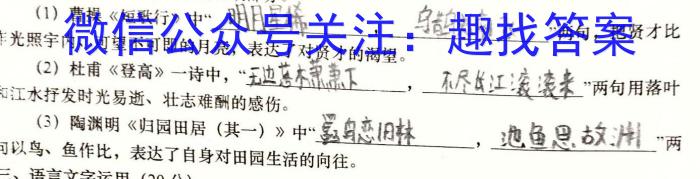 (1) 曹操《短歌行》中“明月星稀，乌鹊
两句，把贤才比
作光照宇内、可望不可即的月亮，表达了对贤才的渴望。
微信公众号关注：趣找答案
(2) 杜甫《登高》一诗中，“无边落木萧萧下，不尽长江滚滚来”两句用落叶
和江水抒发时光易逝、壮志难酬的感伤。
(3) 陶渊明《归园田居（其一）》中“羁鸟恋旧林，池鱼思故渊”两
句以鸟、鱼作比，表达了自身对田园生活的向往。
三、语言文字运用（20分）